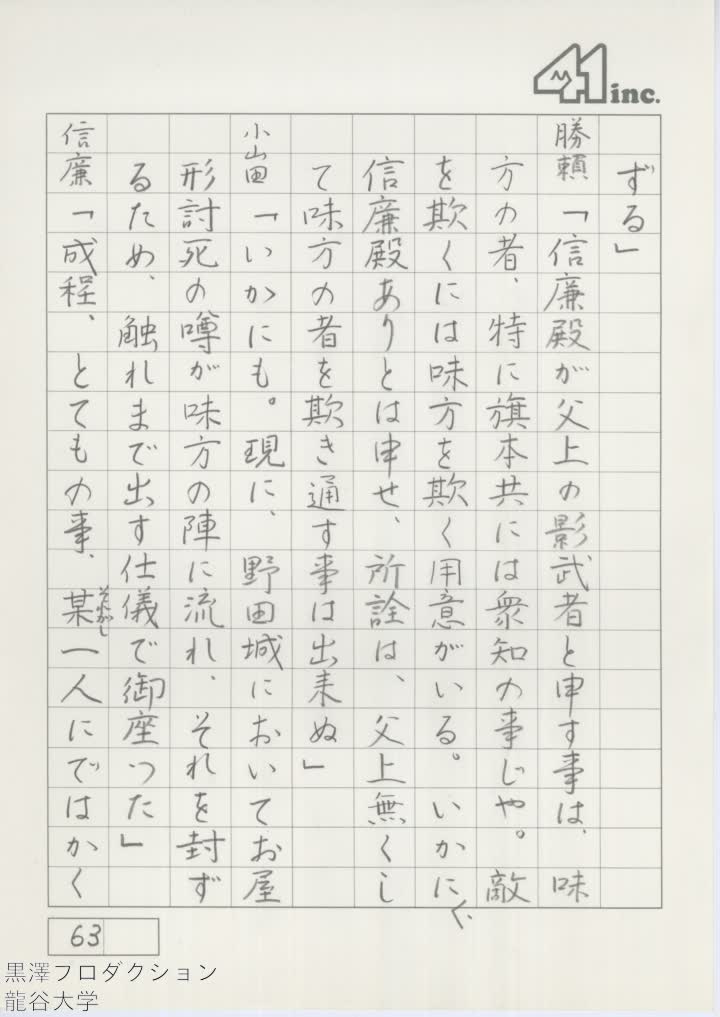 41 inc.
ずる」
勝頼「信廉殿が父上の影武者と申す事は、味
方の者、特に旗本共には衆知の事じや。敵
を欺くには味方を欺く用意がいる。いかに
信廉殿ありとは申せ、所詮は、父上無くし
て味方の者を欺き通す事は出来ぬ」
小山田「いかにも。現に、野田城においてお屋
形討死の噂が味方の陣に流れ、それを封ず
るため、触れまで出す仕儀で御座った」
信廉「成程、とてもの事、某一人にではかく
それがし
63
黒澤プロダクション
龍谷大学